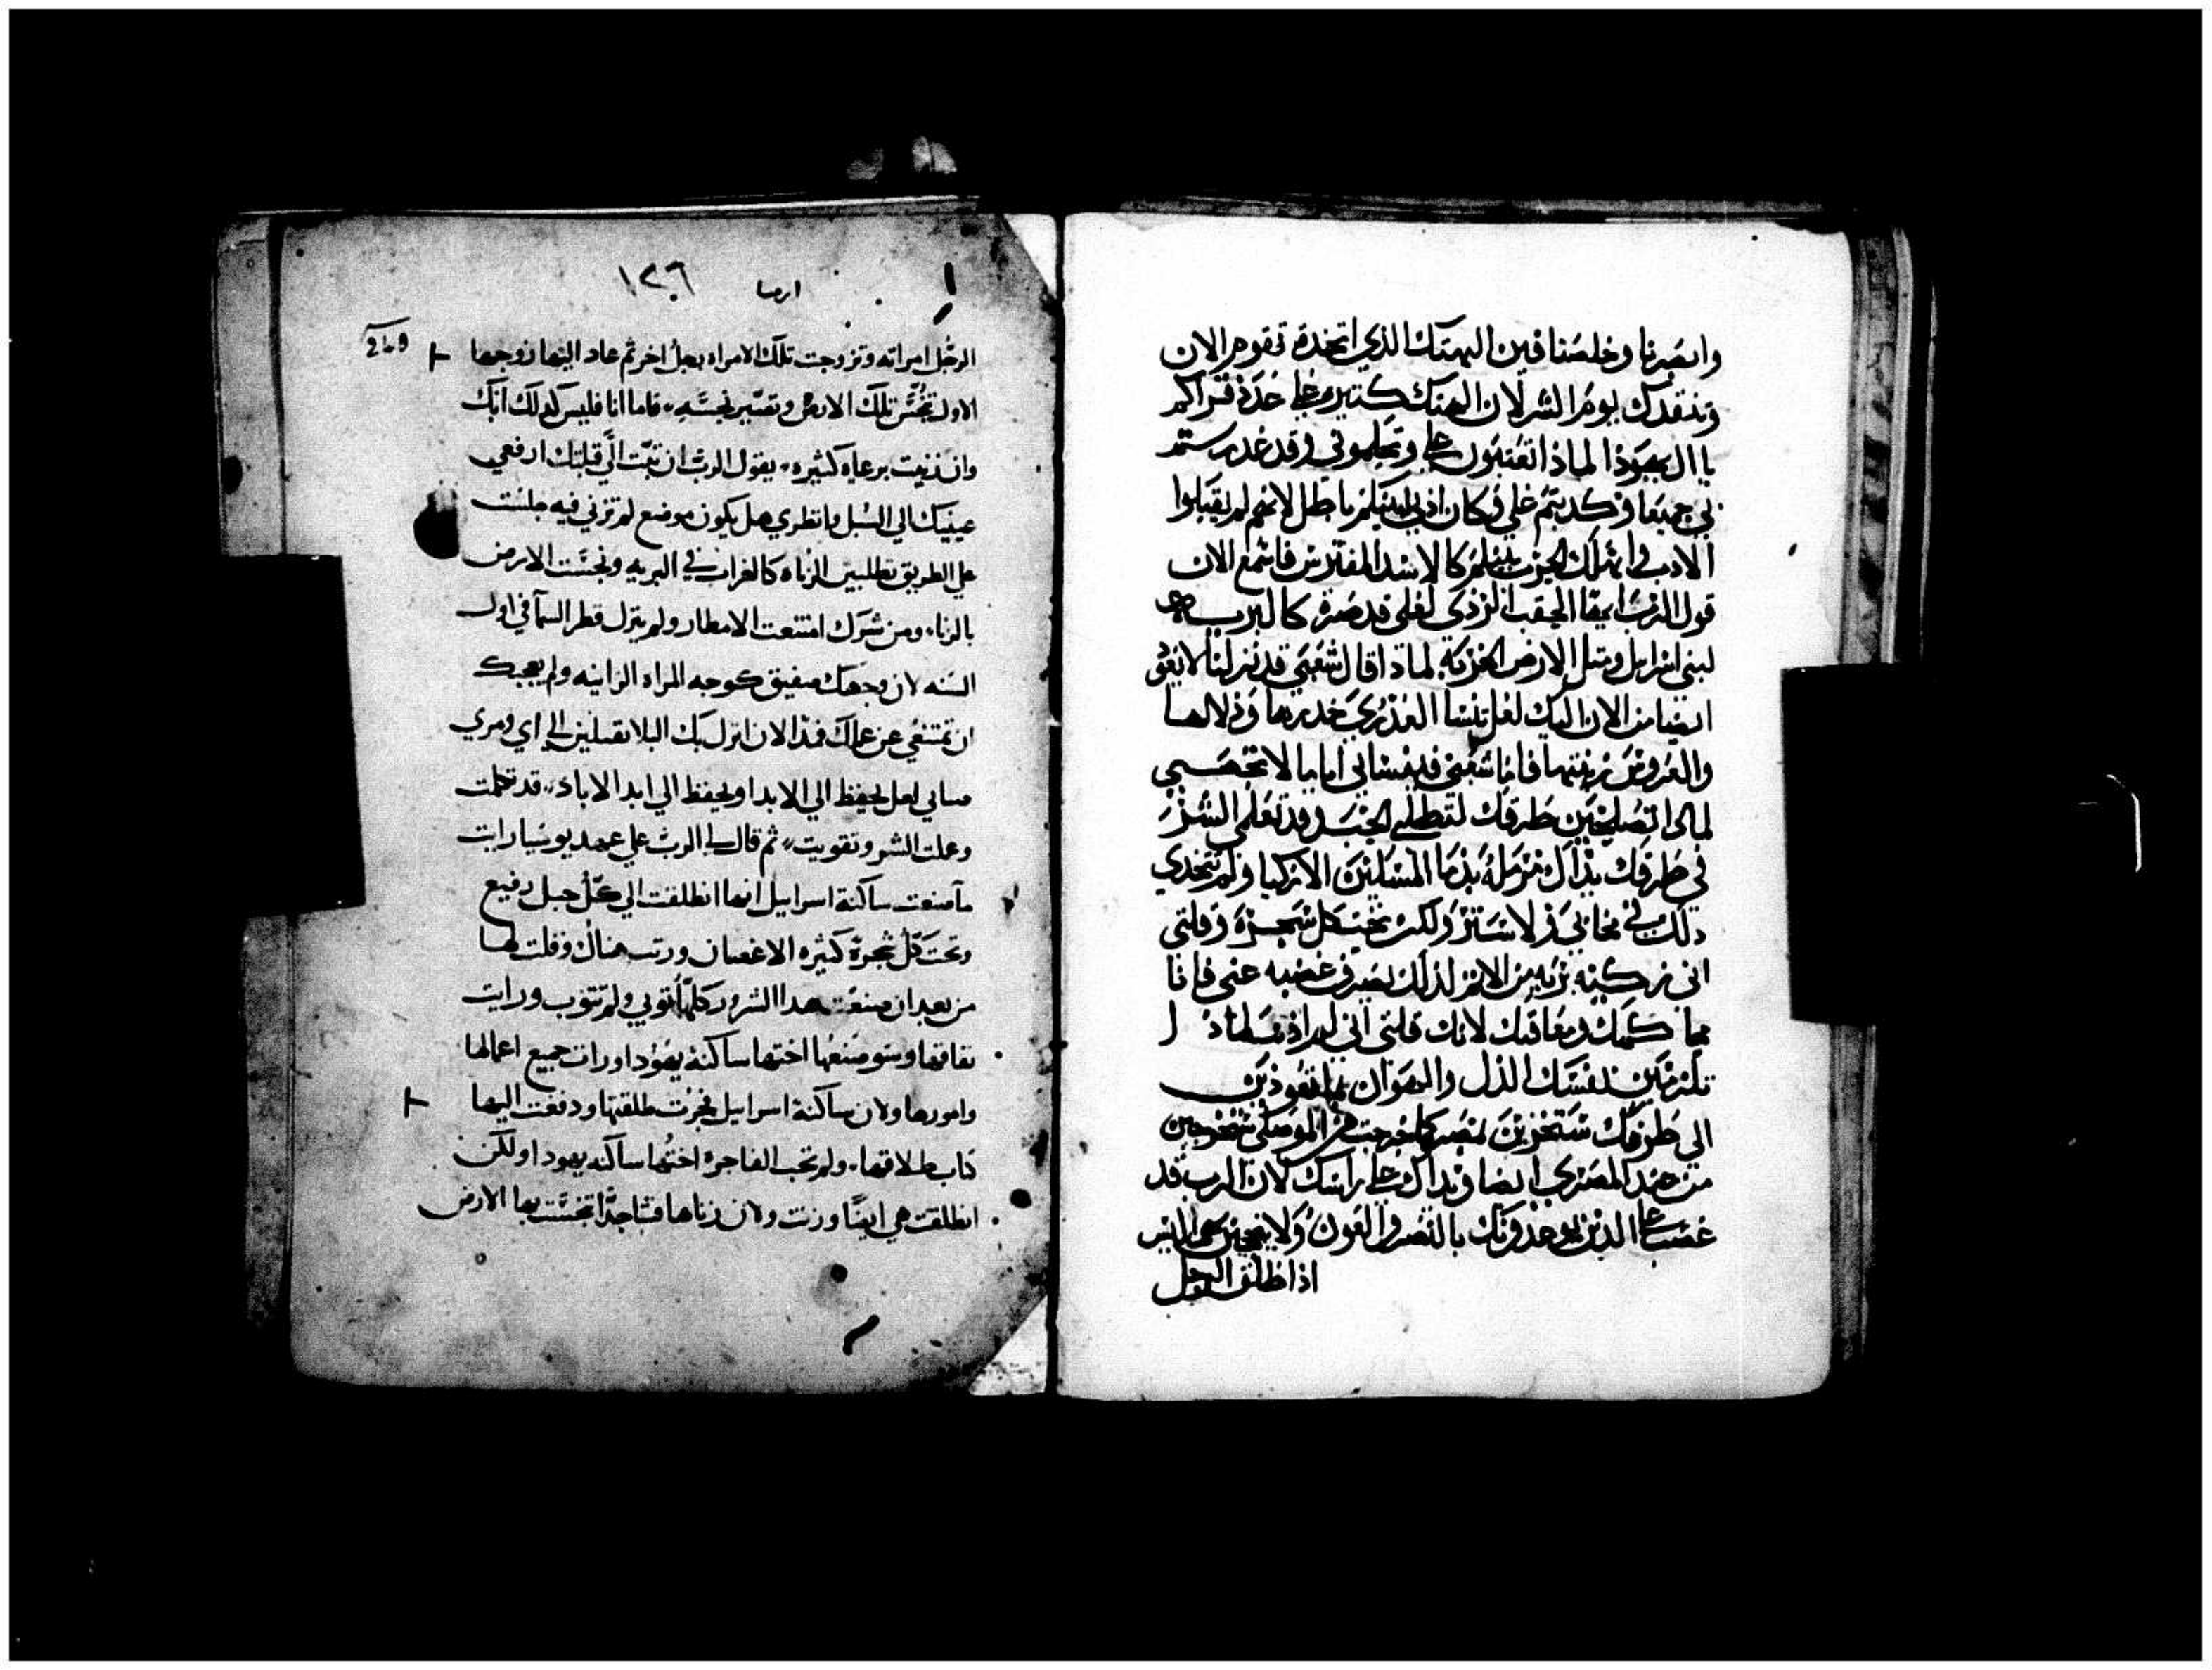 وانصرنا وخلصنا فين الهتك الذي اتخدة تقوم الان
وتنقدك يوم الشر لان الهتك كتيره علي حدة قراكم
يا ال يهوذا لماذا تعتبون علي وتحلموني وقد غدرستم
بي جميعا وكدبتم علي وكان ادبي لبنيكم باطل لانهم لم يقبلوا
الادب واهلك الحرب بنيكم كالاسد المفترس فاسمع الان
قول الرب ايها الحقب الردي لعلي قد صرة كالبرب
لبني اسرايل ومتل الارض الخربة لماذا قال شعبي قد نزلنا لا نعود
ايضا من الان اليك لعل تنسا العذري خدرها ودلالها
والعروس زينتها فاما شعبي فد نساني اياما لا تحصي
لمادا تصلحين طرقك لتطلبي الحب وقد تعلمي الشر
في طرقك يداك مرملة بدما المساكين الازكيا ولم تتخدي
دلك في مخابي ولا ستر ولكن تحت كل شجرة وقلتي
اني زكيه بريه من الاتم لذلك يصرف غضبه عني فانا
محاكمك ومعاقبك لانك قلتي اني لم اذنب لماذا
تلزمين نفسك الذل والهوان بما تعودين
الي طرقك ستخزين بمصر كما خرجت من الموصل ستخرجين
من عند المصري ايضا ويداك علي راسك لان الرب قد
غضب علي الذين يوعدونك بالنصر والعون ولا تنجحين
اذا طلق الرجل
ارميا ١٢٦
249
الرجل امراته وتزوجت تلك الامراه بعل اخر ثم عاد اليها زوجها
الاول تنجس تلك الارض وتصير نجسه فاما انا فليس كذلك انك
وان زنيت برعاه كثيره يقول الرب ان تبت الي قبلتك ارفعي
عينيك الي السبل وانظري هل يكون موضع لم تزني فيه جلست
علي الطريق تطلبين الزناه كالغراب في البريه ونجست الارض
بالزنا ومن شرك امتنعت الامطار ولم ينزل قطر السما في اول
السنه لان وجهك صفيق كوجه المراه الزانيه ولم يعجبك
ان تمتنعي عن عملك فمذ الان انزل بك البلا تقبلين الي اي ومري
صباي لعل يحفظ الي الابد او يحفظ الي ابد الاباد قد تكلمت
وعملت الشر وتقويت ثم قال لي الرب علي عهد يوشيا رايت
ما صنعت ساكنة اسرايل انها انطلقت الي كل جبل رفيع
وتحت كل شجرة كثيره الاغصان وزنت هناك وقلت لها
من بعد ان صنعت هدا الشرور كلها توبي ولم تتوب ورايت
نفاقها وسو صنعها اختها ساكنة يهودا ورات جميع اعمالها
وامورها ولان ساكنة اسرايل فجرت طلقتها ودفعت اليها
كتاب طلاقها ولم تخب الفاجره اختها ساكنه يهودا ولكن
انطلقت هي ايضا وزنت ولان زناها فشا جدا تنجست بها الارض